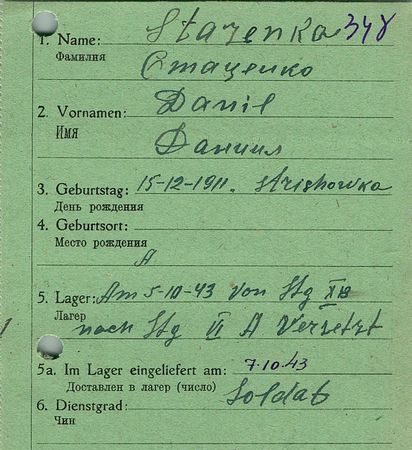 1. Name: Stazenko 348
Фамилия
Стаценко
2. Vornamen: Daniil
Имя
Даниил
3. Geburtstag: 15-12-1911. Strishowka
День рождения
4. Geburtsort:
Место рождения
A
5. Lager: Am 5-10-43 von Stg
Лагер
nach Stg VI A Versetzt
5a. Im Lager eingeliefert am: 7.10.43
Доставлен в лагер (число)
6. Dienstgrad: Soldat
Чин